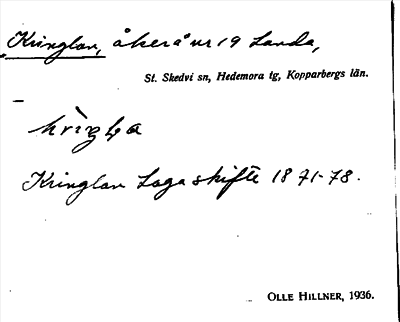 Kringlan, åker å nr 19 Landa,
St. Skedvi sn, Hedemora tg, Kopparbergs län.
Kringlan Laga skifte 1871-78.
OLLE HILLNER, 1936.